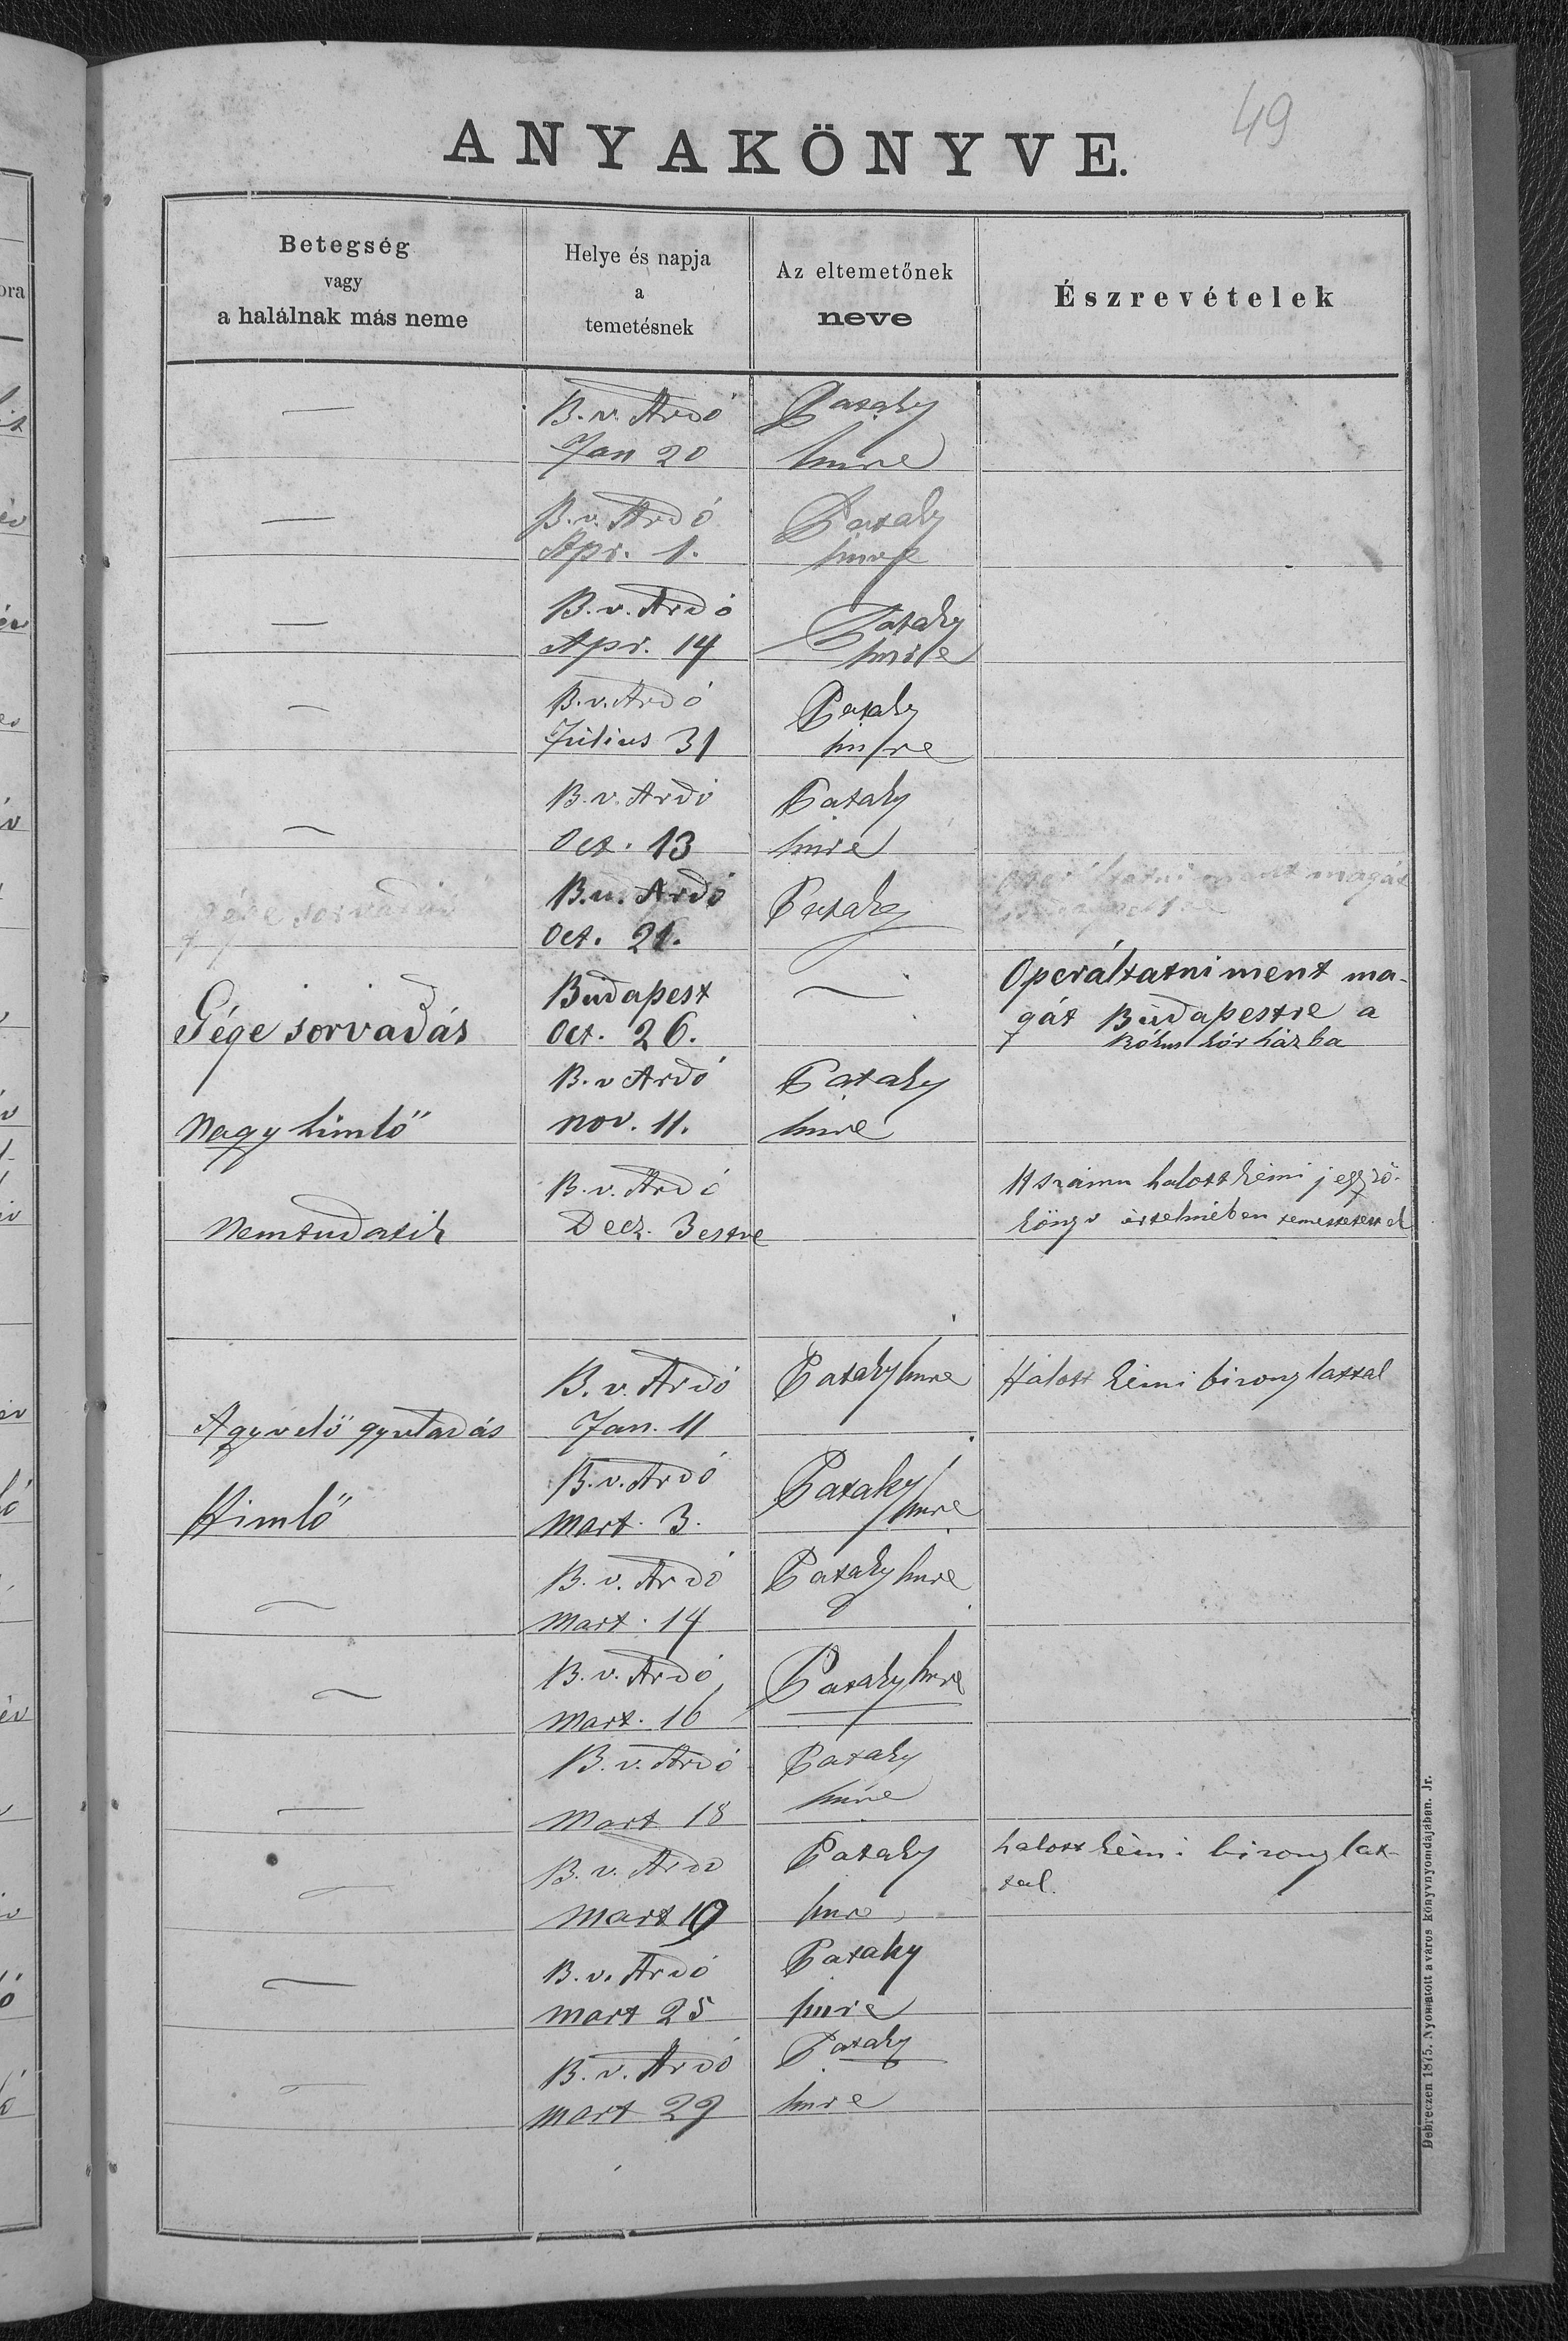 49
ANYAKÖNYVE.
Betegség
vagy
a halálnak más neme
Helye és napja
a
temetésnek
Az eltemetőnek
neve
Észrevételek
—
B. v. Ardó
Jan 20
Pataky
Imre
—
B. v. Ardó
Apr. 1.
Pataky
Imre
—
B. v. Ardó
Apr. 14
Pataky
Imre
—
B. v. Ardó
Július 31
Pataky
Imre
—
B. v. Ardó
Oct. 13
Pataky
Imre
gége sorvadás
B. v. Ardó
Oct. 21.
Pataky
Operáltatni ment magát
Budapestre
Gége sorvadás
Budapest
Oct. 26.
—
Operáltatni ment ma-
gát Budapestre a
Rókus kórházba
Nagy himlő
B. v Ardó
nov. 11.
Pataky
Imre
Nemtudatik
B. v. Ardó
Decz. 3 estve
11 számu halottkémi jegyző-
könyv értelmében temettetett el
Agyvelő gyuladás
B. v. Ardó
Jan. 11
Pataky Imre
Halott kémi bizonylattal
Himlő
B. v. Ardó
Mart. 3.
Pataky
Imre
—
B. v. Ardó
Mart. 14
Pataky Imre
—
B. v. Ardó
Mart. 16
Pataky Imre
—
B. v. Ardó
Mart 18
Pataky
Imre
—
B. v. Ardó
Mart 19
Pataky
Imre
halott kémi bizonylat-
tal.
—
B. v. Ardó
Mart 25
Pataky
Imre
—
B. v. Ardó
Mart 29
Pataky
Imre
Debreczen 1875. Nyomatott a város könyvnyomdájában. Jr.